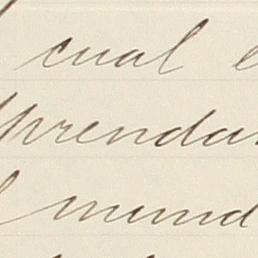 cual e
prendar
l mund